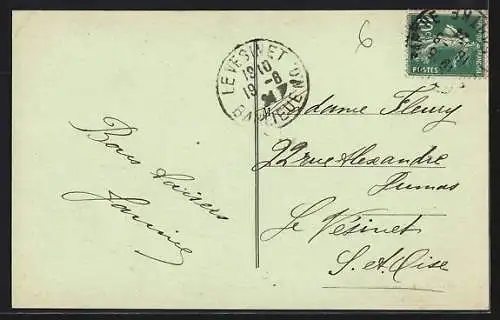 6
POSTES
LE VESINET
1910
19-8
BANLIEUE
Madame Fleury
22 rue Alexandre
Dumas
Le Vésinet
S. et Oise
Bons baisers
Janine